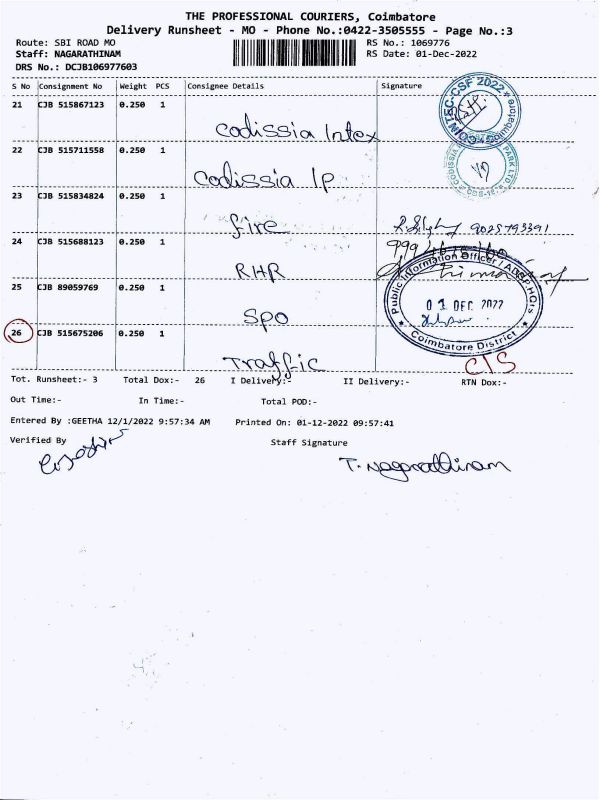 THE PROFESSIONAL COURIERS, Coimbatore
Delivery Runsheet - MO - Phone No.:0422-3505555 - Page No.:3
Route: SBI ROAD MO RS No.: 1069776
Staff: NAGARATHINAM RS Date: 01-Dec-2022
DRS No.: DCJB106977603
S No Consignment No Weight PCS Consignee Details Signature
21 CJB 515867123 0.250 1
Codissia Intex
COINTEC-CSF 2022 Coimbatore
22 CJB 515711558 0.250 1
Codissia IP
CODISSIA PARK LTD
23 CJB 515834824 0.250 1
fire 9025793391
24 CJB 515688123 0.250 1
RHR
Public Information Officer / ADSP HQrs
25 CJB 89059769 0.250 1
01 DEC 2022
SPO
Coimbatore District
26 CJB 515675206 0.250 1
Traffic C/S
Tot. Runsheet:- 3 Total Dox:- 26 I Delivery:- II Delivery:- RTN Dox:-
Out Time:- In Time:- Total POD:-
Entered By :GEETHA 12/1/2022 9:57:34 AM Printed On: 01-12-2022 09:57:41
Verified By Staff Signature
T. Nagarathinam